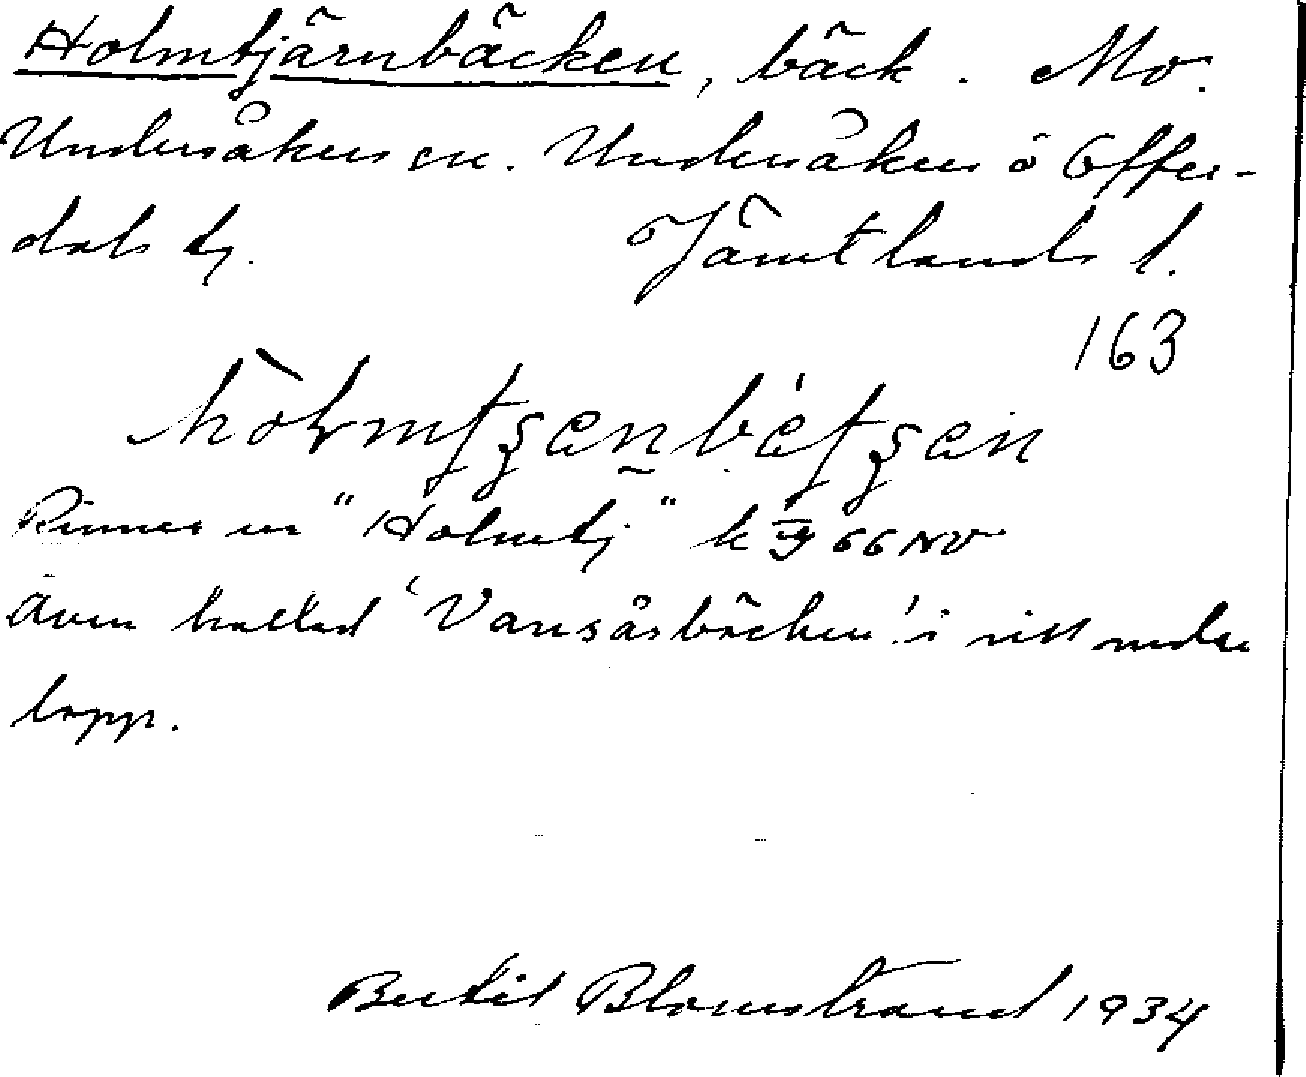 Holmtjärnbäcken, bäck. Mo.
Undersåkers sn. Undersåkers o Offer-
dals tg. Jämtlands l.
163
Rinner ur "Holmtj" k 66 NV
även kallad 'Vansåsbäcken' i sitt nedre
lopp.
Bertil Blomstrand 1934